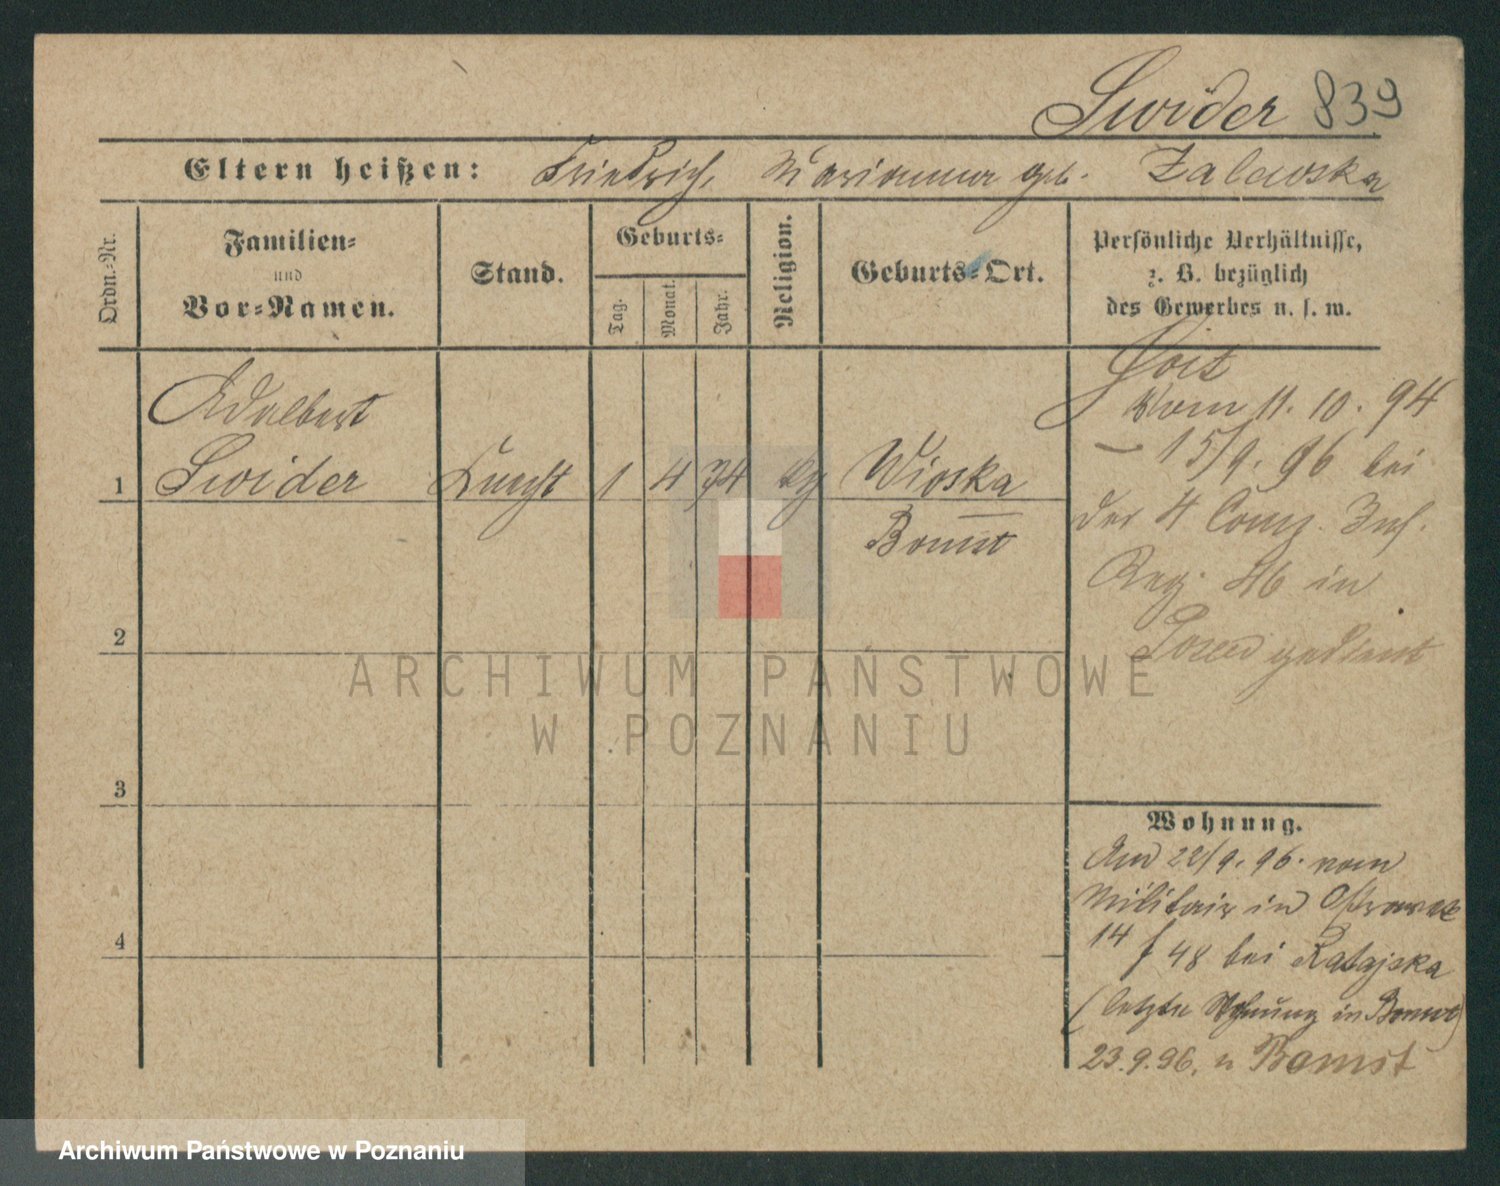 Swider 839
Eltern heißen: Friedrich, Marianna geb. Zalewska
Ordn.-Nr.
Familien-
und
Vor-Namen.
Stand.
Geburts-
Tag.
Monat.
Jahr.
Religion.
Geburts-Ort.
Persönliche Verhältnisse,
z. B. bezüglich
des Gewerbes u. s. w.
Adalbert
1 Swider Knecht 1 4 74 Wioska
Bomst
vom 11. 10. 94
– 15/9. 96 bei
der 4 Comp. Inf.
Reg. 46 in
Posen gedient
2
3
4
Wohnung.
Am 22/9. 96. vom
Militair in Ostrowek
14 48 bei Ratajska
(letzte Wohnung in Bomst)
23.9.96. n Bomst
ARCHIWUM PAŃSTWOWE
W POZNANIU
Archiwum Państwowe w Poznaniu